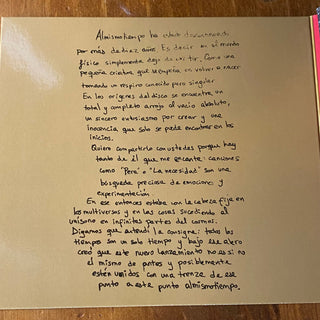 Almismotiempo ha estado descansando
por más de diez años. Es decir en el mundo
físico simplemente dejó de existir. Como una
pequeña criatura que se empeña en volver a nacer
tomando un respiro conocido pero singular
En los orígenes del disco se encuentra un
total y completo arrojo al vacío absoluto,
un sincero entusiasmo por crear y una
inocencia que solo se puede encontrar en los
inicios.
Quiero compartirlo con ustedes porque hay
tanto de él que me encanta: canciones
como "Pera" o "La necesidad" son una
búsqueda preciosa de emociones y
experimentación
En ese entonces estaba con la cabeza fija en
los multiversos y en las cosas sucediendo al
unísono en infinitas partes del cosmos.
Digamos que entendí la consigna: todos los
tiempos son un solo tiempo y bajo ese alero
creo que este nuevo lanzamiento no es si no
el mismo de antes y posiblemente
estén unidos con una trenza de ese
punto a este punto almismotiempo.